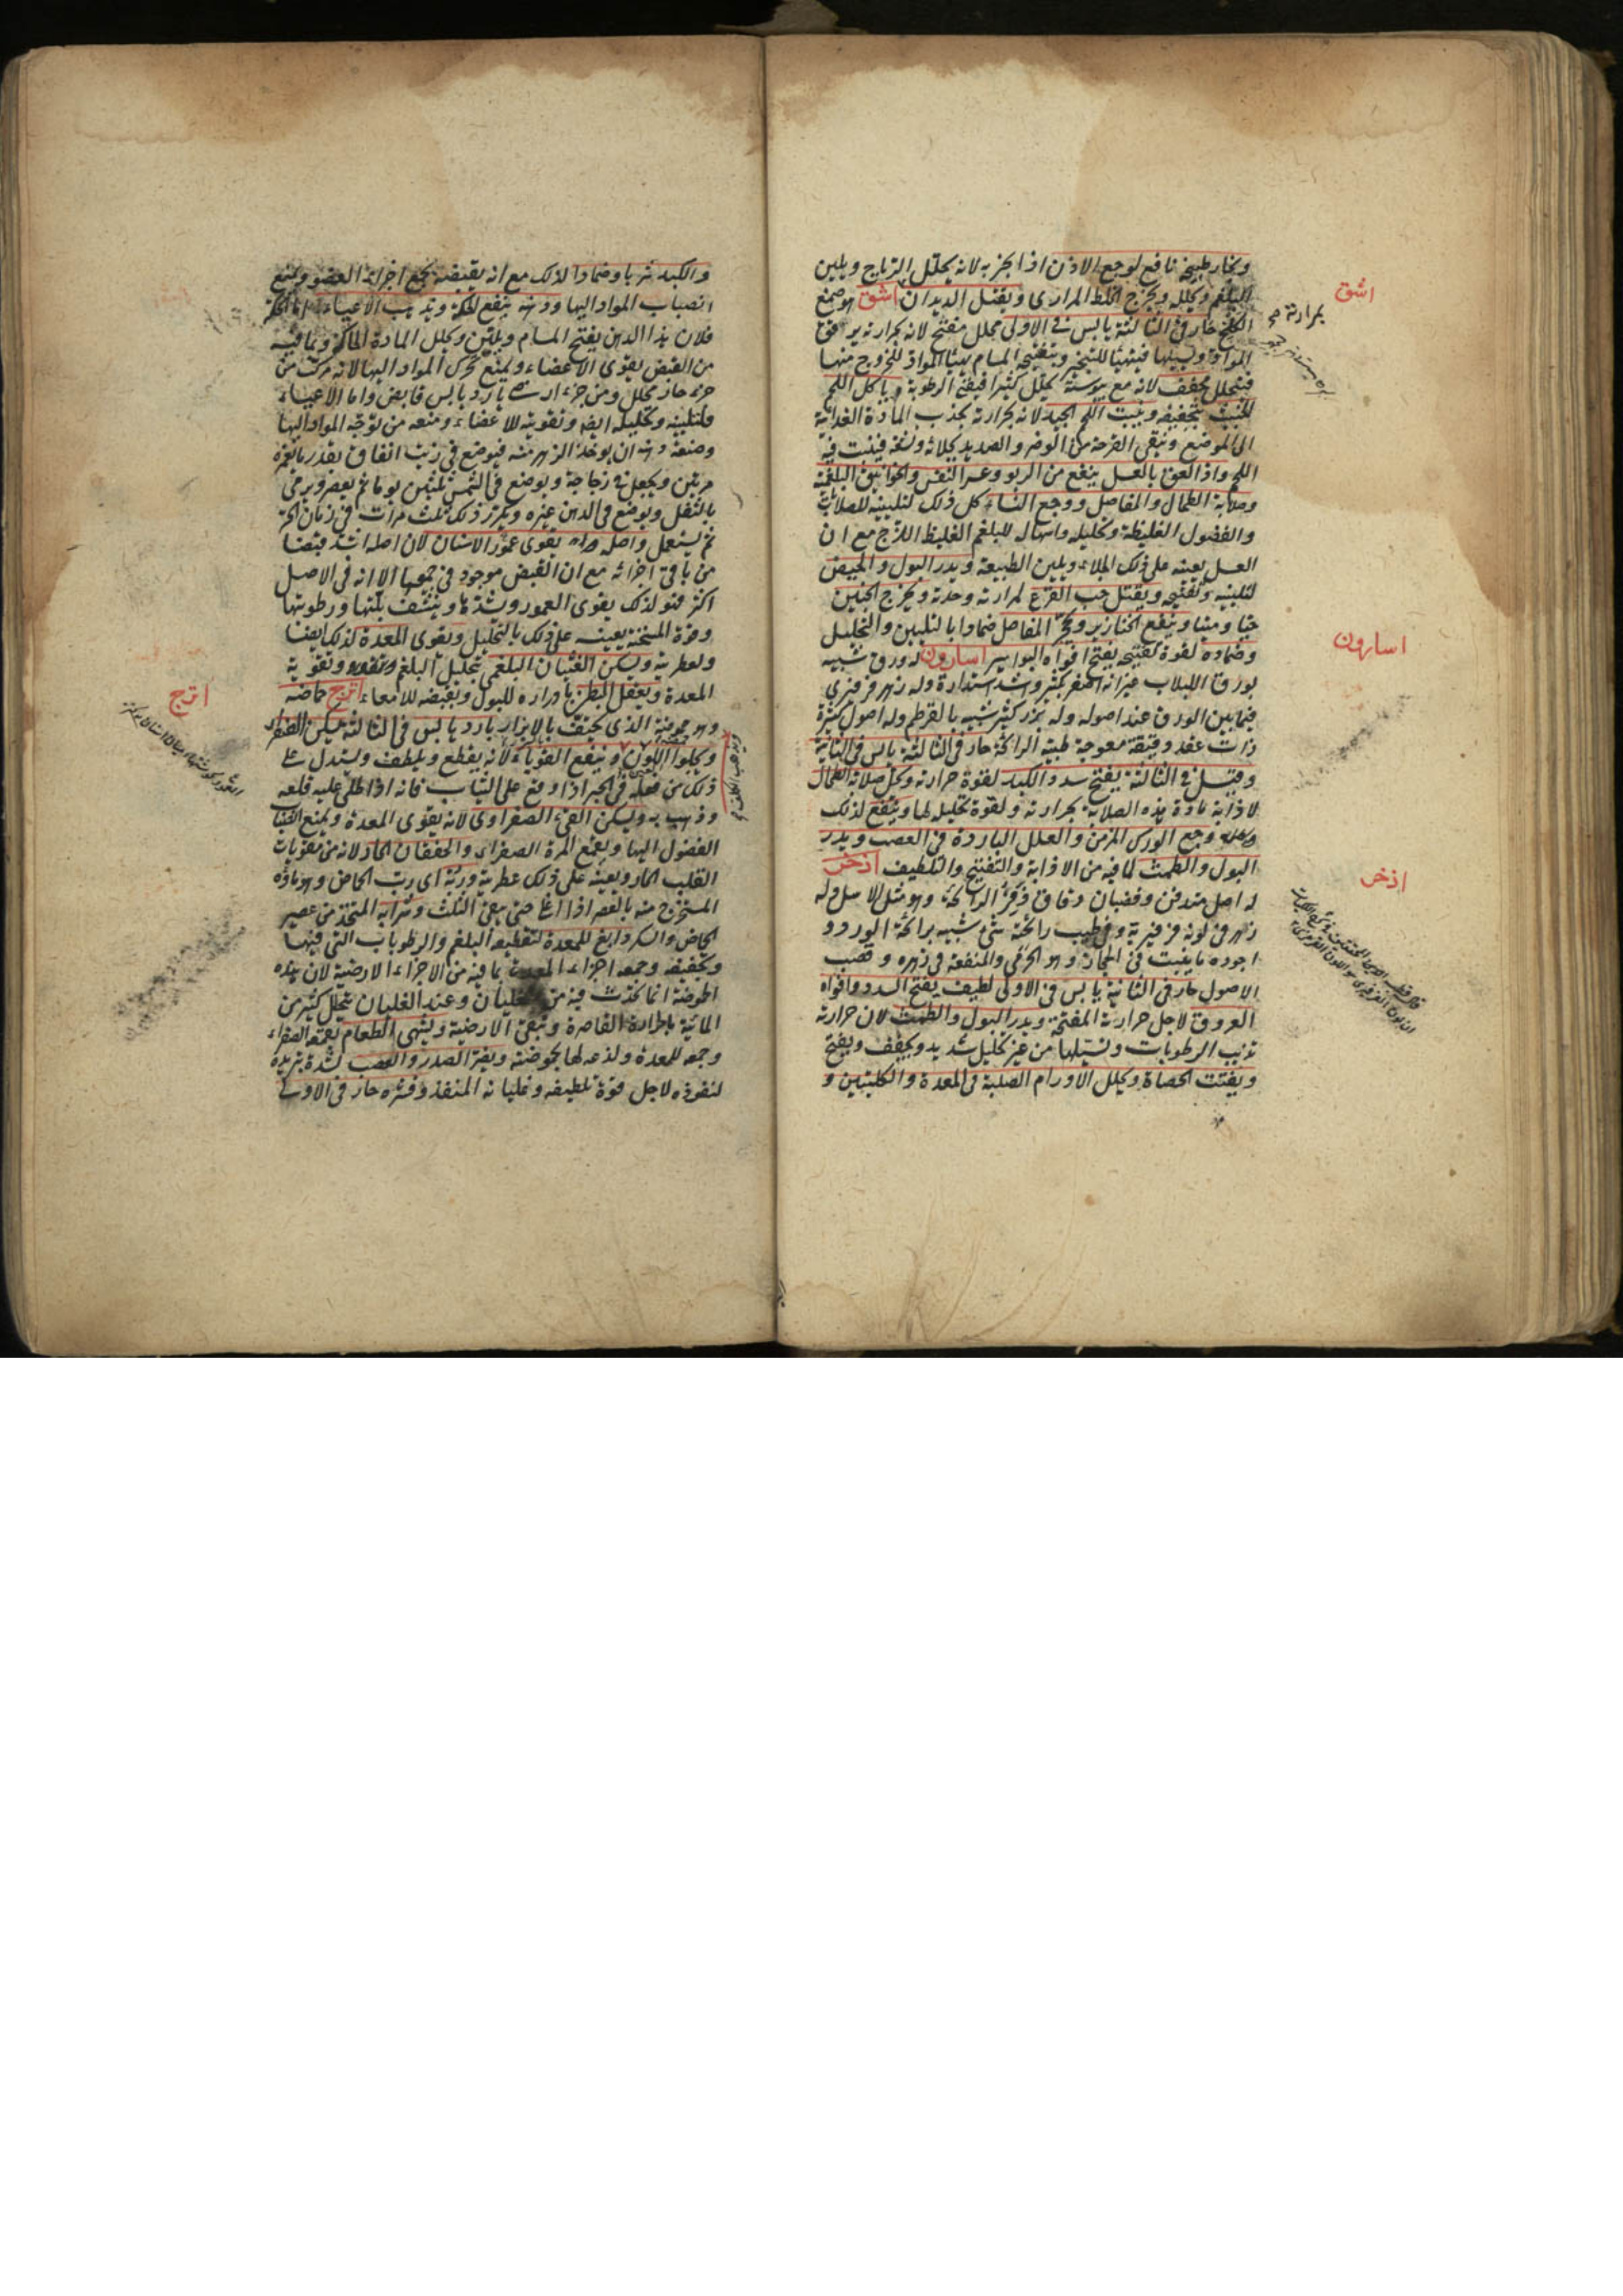 وبخار طبيخه نافع لوجع الاذن اذا بخر به لانه يحلل الرياح ويلين
البلغم ويحلله ويخرج الخلط المرارى ويقتل الديدان اشق هو صمغ
الكلخ حار فى الثالثة يابس فى الاولى محلل مفتح لانه بحرارته يرقق
المواد ويسيلها فيتهيأ للتبخير وبتفتيحه المسام يهيئ المواد للخروج منها
فيتحلل مجفف لانه مع يبوسته يحلل كثيرا فيفنى الرطوبة وياكل اللحم
الخبيث بتجفيفه وينبت اللحم الجيد لانه بحرارته يجذب المادة الغذائية
الى الموضع وينقى القرحة من الوضر والصديد بجلائه ولذعه فينبت فيه
اللحم واذا لعق بالعسل ينفع من الربو وعسر النفس والخوانيق البلغمية
وصلابة الطحال والمفاصل ووجع النساء كل ذلك لتليينه للصلابات
والفضول الغليظة وتحليله واسهاله للبلغم الغليظ اللزج مع ان
العسل يعينه على ذلك الجلاء ويلين الطبيعة ويدر البول والحيض
لتليينه وتفتيحه ويقتل حب القرع لمرارته وحدته ويخرج الجنين
حيا وميتا وينفع الخنازير وتحجر المفاصل ضمادا بالتليين والتحليل
وضماده لقوة تفتيحه يفتح افواه البواسير اسارون له ورق شبيه
بورق اللبلاب غير انه اصغر بكثير واشد استدارة وله زهر فرفيرى
فيما بين الورق عند اصوله وله بزر كثير شبيه بالقرطم وله اصول كثيرة
ذات عقد دقيقة معوجة طيبة الرائحة حار فى الثالثة يابس فى الثانية
وقيل فى الثالثة يفتح سدد الكبد لقوة حرارته ويحل صلابة الطحال
لاذابة مادة هذه الصلابة بحرارته ولقوة تحليله لها وينفع لذلك
وجع الورك المزمن والعلل الباردة فى العصب ويدر
البول والطمث لما فيه من الاذابة والتفتيح والتلطيف اذخر
له اصل مندفن وقضبان دقاق ذفر الرائحة وهو مثل الاسل وله
زهر فى لونه فرفيرية وفى طيب رائحته شىء شبيه برائحة الورد و
اجوده ما ينبت فى الحجاز وهو الحرمى والمنفعة فى زهره وقصب
الاصول حار فى الثانية يابس فى الاولى لطيف يفتح السدد وافواه
العروق لاجل حرارته المفتحة ويدر البول والطمث لان حرارته
تذيب الرطوبات وتسيلها من غير تحليل شديد ويجفف ويفتح
ويفتت الحصاة ويحلل الاورام الصلبة فى المعدة والكليتين و
اشق
اسارون
اذخر
والكبد شربا وضمادا لذلك مع انه بقبضه يجمع اجزاء العضو ويمنع
انصباب المواد اليها ودهنه ينفع الحكة ويذهب الاعياء اما الحكة
فلان هذا الدهن يفتح المسام ويلين ويحلل المادة الحاكة وبما فيه
من القبض يقوى الاعضاء ويمنع تحرك المواد اليها لانه مركب من
جزء حار محلل ومن جزء ارضى بارد يابس قابض واما الاعياء
فلتليينه وتحليله ايضا وتقويته للاعضاء ومنعه من توجه المواد اليها
وصنعة دهنه ان يوخذ الزهر منه فيوضع فى زيت انفاق بقدر ما يغمره
مرتين ويجعل فى زجاجة ويوضع فى الشمس ثلثين يوما ثم يعصر ويرمى
بالثفل ويوضع فى الدهن غيره ويكرر ذلك ثلث مرات فى زمان الحر
ثم يستعمل واصله يقوى عمور الاسنان لان اصله اشد قبضا
من باقى اجزائه مع ان القبض موجود فى جميعها الا انه فى الاصل
اكثر فهو لذلك يقوى العمور ويشدها وينشف بلتها ورطوبتها
وقوته المسخنة يعينه على ذلك بالتحليل ويقوى المعدة لذلك ايضا
ولعطريته ويسكن الغثيان البلغمى بتحليل البلغم وتقوية
المعدة ويعقل البطن بادراره للبول وبقبضه للامعاء اترج حماضه
وهو حموضته الذى يحيف بالابزار بارد يابس فى الثالثة يسكن الصفراء
ويجلوا اللون وينفع القوباء لانه يقطع ويلطف ويستدل على
ذلك من فعله فى الحبر اذا وقع على الثياب فانه اذا طلى عليه قلعه
وذهب به ويسكن القىء الصفراوى لانه يقوى المعدة ويمنع انصباب
الفضول اليها ويقمع المرة الصفراء والخفقان الحار لانه من مقويات
القلب الحار ويعينه على ذلك عطريته وربه اى رب الحماض وهو ماؤه
المستخرج منه بالعصر اذا اغلى حتى يبقى الثلث وشرابه المتخذ من عصير
الحماض والسكر دابغ للمعدة لتقطيعه البلغم والرطوبات التى فيها
وتجفيفه وجمعه اجزاء المعدة بما فيه من الاجزاء الارضية لان هذه
الحموضة انما تحدث فيه من الغليان وعند الغليان يتحلل كثير من
المائية بالحرارة القاصرة وتبقى الارضية ويشهى الطعام بقمعه الصفراء
وجمعه للمعدة ولذعه لها بحموضته ويضر الصدر والعصب لشدة تبريده
لنفوذه لاجل قوة تلطيفه وغليانه المنفذ وقشره حار فى الاولى
اترج
ويذهب الكلف